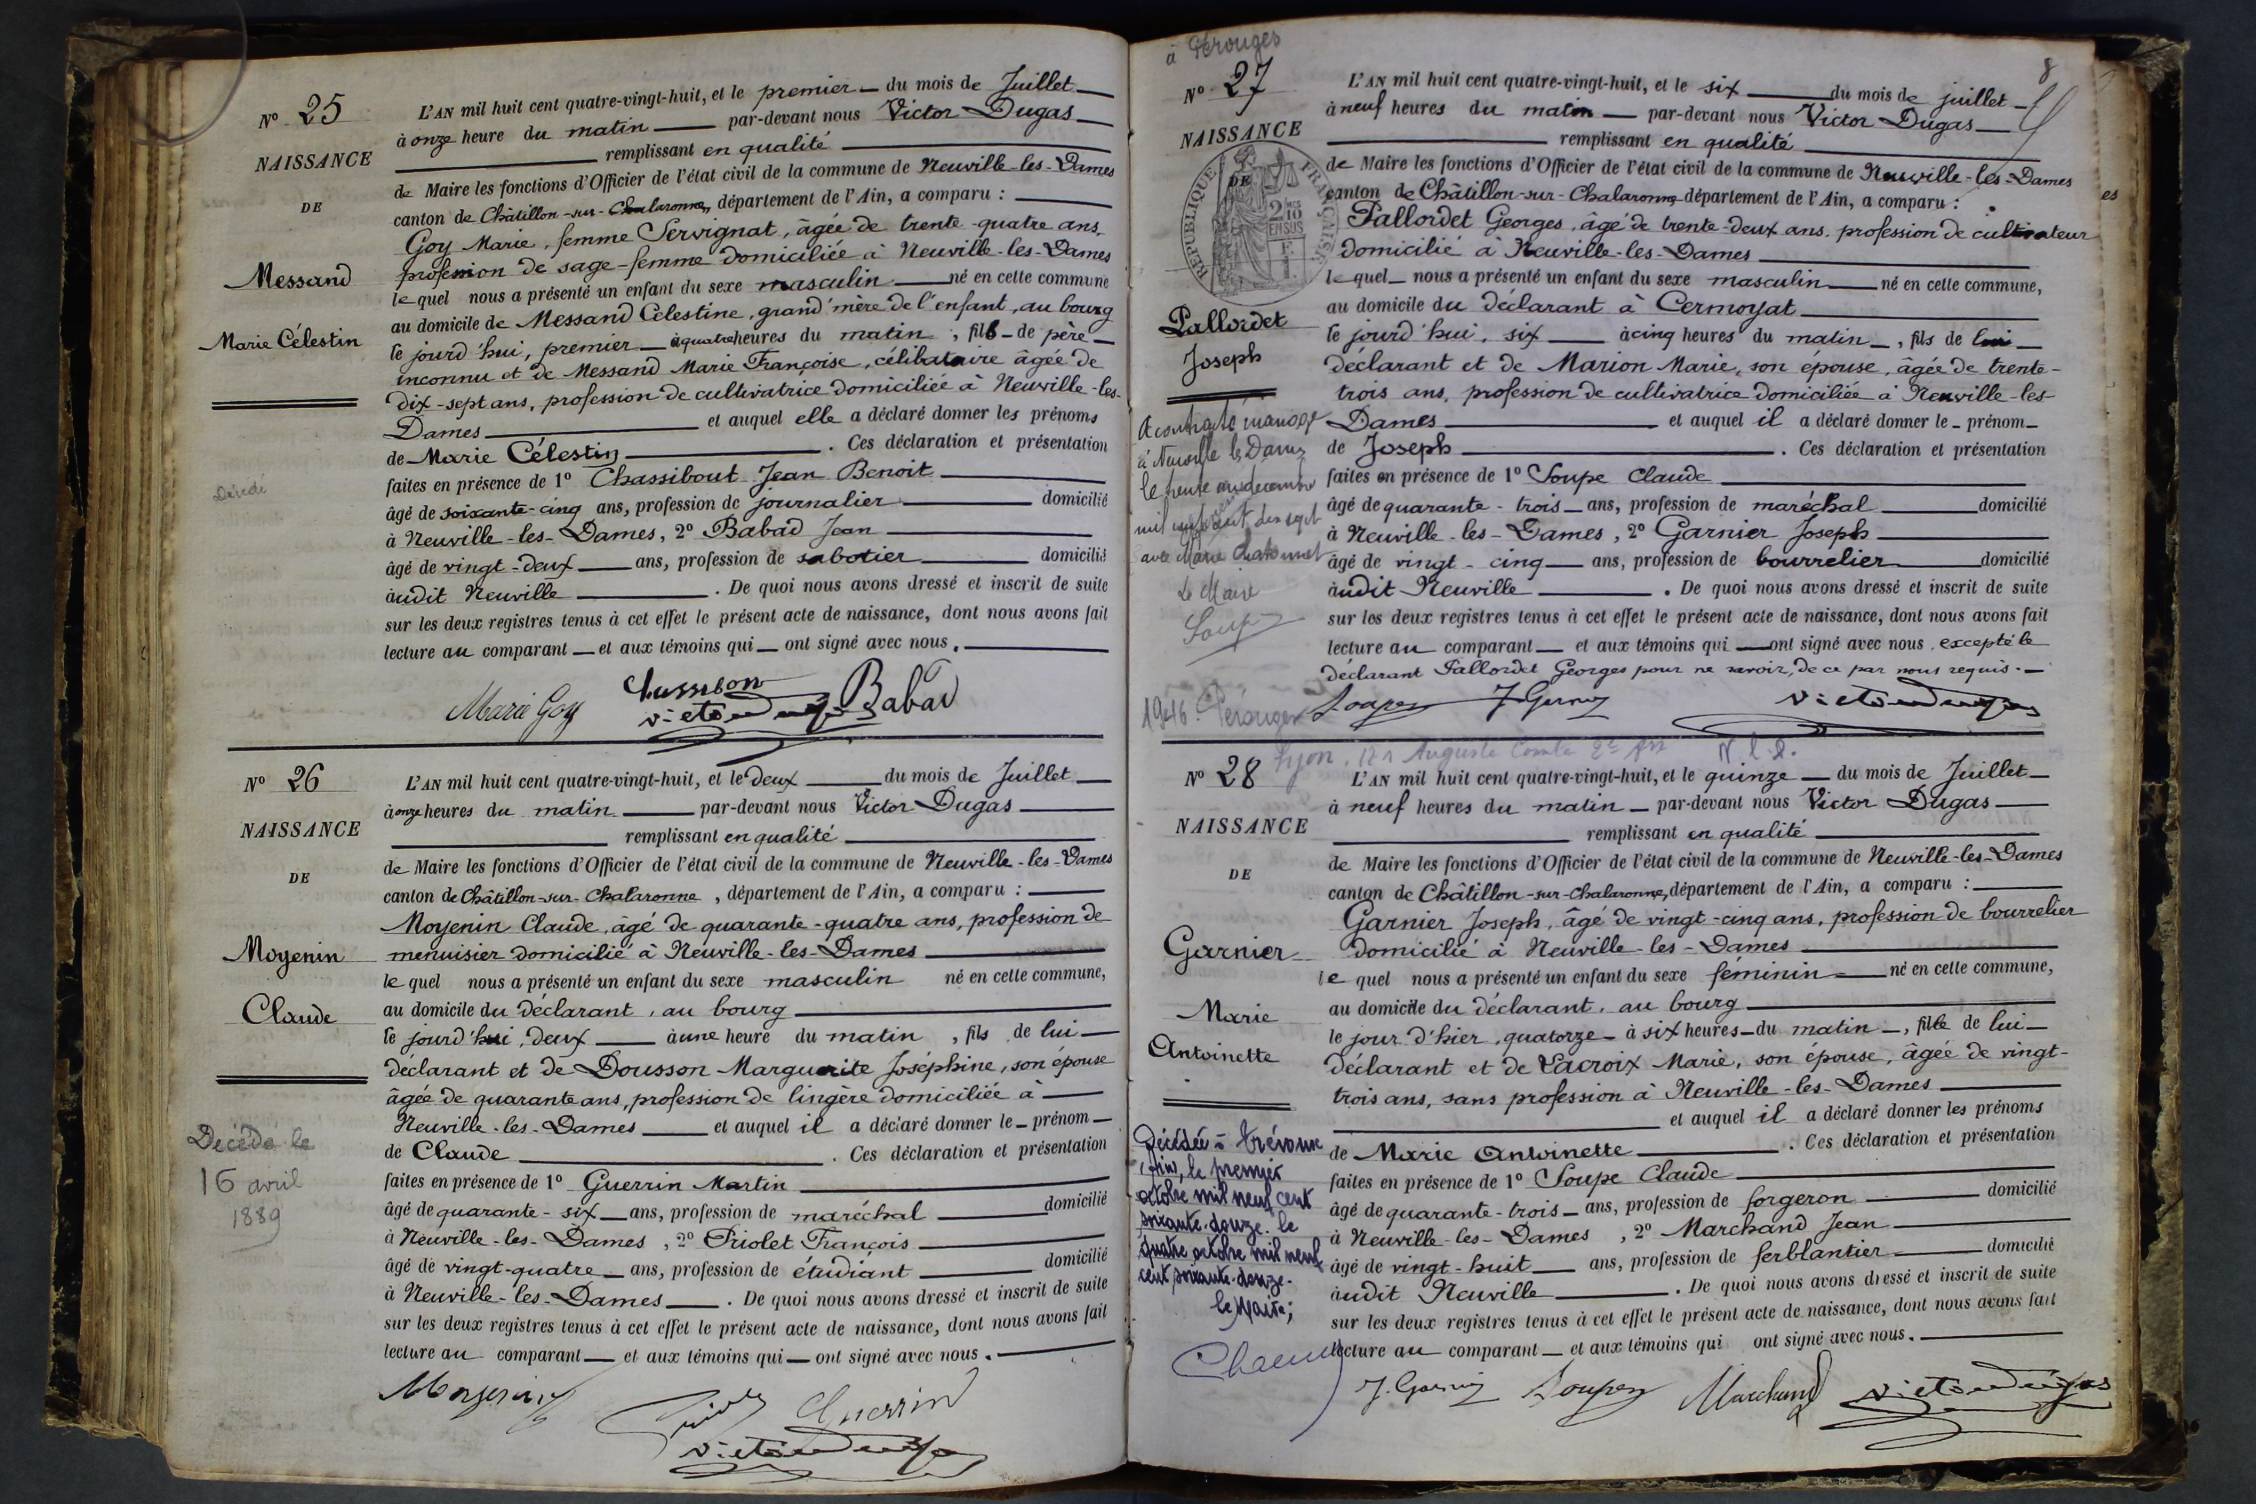 N° 25
NAISSANCE
DE
Messand
Marie Célestin
Décédé
L'AN mil huit cent quatre-vingt-huit, et le premier du mois de Juillet
à onze heure du matin par-devant nous Victor Dugas
remplissant en qualité
de Maire les fonctions d'Officier de l'état civil de la commune de Neuville-les-Dames
canton de Châtillon-sur-Chalaronne, département de l'Ain, a comparu :
Goy Marie, femme Servignat, âgée de trente-quatre ans
profession de sage-femme domiciliée à Neuville-les-Dames
lequel nous a présenté un enfant du sexe masculin né en cette commune
au domicile de Messand Célestine, grand'mère de l'enfant, au bourg
le jourd'hui, premier à quatre heures du matin, fils de père
inconnu et de Messand Marie Françoise, célibataire âgée de
dix-sept ans, profession de cultivatrice domiciliée à Neuville-les-
Dames et auquel elle a déclaré donner les prénoms
de Marie Célestin. Ces déclaration et présentation
faites en présence de 1° Chassibout Jean Benoit
âgé de soixante-cinq ans, profession de journalier domicilié
à Neuville-les-Dames, 2° Babad Jean
âgé de vingt-deux ans, profession de sabotier domicilié
audit Neuville. De quoi nous avons dressé et inscrit de suite
sur les deux registres tenus à cet effet le présent acte de naissance, dont nous avons fait
lecture au comparant et aux témoins qui ont signé avec nous.
Marie Goy Babad
N° 26
NAISSANCE
DE
Moyenin
Claude
Décédé le
16 avril
1889
L'AN mil huit cent quatre-vingt-huit, et le deux du mois de Juillet
à onze heures du matin par-devant nous Victor Dugas
remplissant en qualité
de Maire les fonctions d'Officier de l'état civil de la commune de Neuville-les-Dames
canton de Châtillon-sur-Chalaronne, département de l'Ain, a comparu :
Moyenin Claude, âgé de quarante-quatre ans, profession de
menuisier domicilié à Neuville-les-Dames
lequel nous a présenté un enfant du sexe masculin né en cette commune,
au domicile du déclarant, au bourg
le jourd'hui, deux à une heure du matin, fils de lui
déclarant et de Dousson Marguerite Joséphine, son épouse
âgée de quarante ans, profession de lingère domiciliée à
Neuville-les-Dames et auquel il a déclaré donner le prénom
de Claude. Ces déclaration et présentation
faites en présence de 1° Guerrin Martin
âgé de quarante-six ans, profession de maréchal domicilié
à Neuville-les-Dames, 2° Priolet François
âgé de vingt-quatre ans, profession de étudiant domicilié
à Neuville-les-Dames. De quoi nous avons dressé et inscrit de suite
sur les deux registres tenus à cet effet le présent acte de naissance, dont nous avons fait
lecture au comparant et aux témoins qui ont signé avec nous.
Moyenin Guerrin
à Pérouges
8
N° 27
NAISSANCE
DE
RÉPUBLIQUE FRANÇAISE
2/10 EN SUS
Pallordet
Joseph
A contracté mariage
à Neuville les Dames
le
mil neuf cent dix sept
avec Marie
Le Maire
Soupe
1946. Pérouges
L'AN mil huit cent quatre-vingt-huit, et le six du mois de juillet
à neuf heures du matin par-devant nous Victor Dugas
remplissant en qualité
de Maire les fonctions d'Officier de l'état civil de la commune de Neuville-les-Dames
canton de Châtillon-sur-Chalaronne département de l'Ain, a comparu :
Pallordet Georges, âgé de trente-deux ans, profession de cultivateur
domicilié à Neuville-les-Dames
lequel nous a présenté un enfant du sexe masculin né en cette commune,
au domicile du déclarant à Cermoyat
le jourd'hui, six à cinq heures du matin, fils de lui
déclarant et de Marion Marie, son épouse, âgée de trente-
trois ans, profession de cultivatrice domiciliée à Neuville-les-
Dames et auquel il a déclaré donner le prénom
de Joseph. Ces déclaration et présentation
faites en présence de 1° Soupe Claude
âgé de quarante-trois ans, profession de maréchal domicilié
à Neuville-les-Dames, 2° Garnier Joseph
âgé de vingt-cinq ans, profession de bourrelier domicilié
audit Neuville. De quoi nous avons dressé et inscrit de suite
sur les deux registres tenus à cet effet le présent acte de naissance, dont nous avons fait
lecture au comparant et aux témoins qui ont signé avec nous, excepté le
déclarant Pallordet Georges pour ne savoir, de ce par nous requis.
Soupe J. Garnier Victor Dugas
Lyon, 12 r Auguste Comte 2e Arr
N° 28
NAISSANCE
DE
Garnier
Marie
Antoinette
Décédée à Trévoux
(Ain, le premier
octobre mil neuf cent
soixante-douze. le
quatre octobre mil neuf
cent soixante-douze.
le Maire;
L'AN mil huit cent quatre-vingt-huit, et le quinze du mois de Juillet
à neuf heures du matin par-devant nous Victor Dugas
remplissant en qualité
de Maire les fonctions d'Officier de l'état civil de la commune de Neuville-les-Dames
canton de Châtillon-sur-Chalaronne, département de l'Ain, a comparu :
Garnier Joseph, âgé de vingt-cinq ans, profession de bourrelier
domicilié à Neuville-les-Dames
lequel nous a présenté un enfant du sexe féminin né en cette commune,
au domicile du déclarant, au bourg
le jour d'hier, quatorze à six heures du matin, fille de lui
déclarant et de Lacroix Marie, son épouse, âgée de vingt-
trois ans, sans profession à Neuville-les-Dames
et auquel il a déclaré donner les prénoms
de Marie Antoinette. Ces déclaration et présentation
faites en présence de 1° Soupe Claude
âgé de quarante-trois ans, profession de forgeron domicilié
à Neuville-les-Dames, 2° Marchand Jean
âgé de vingt-huit ans, profession de ferblantier domicilié
audit Neuville. De quoi nous avons dressé et inscrit de suite
sur les deux registres tenus à cet effet le présent acte de naissance, dont nous avons fait
lecture au comparant et aux témoins qui ont signé avec nous.
J. Garnier Soupe Marchand Victor Dugas